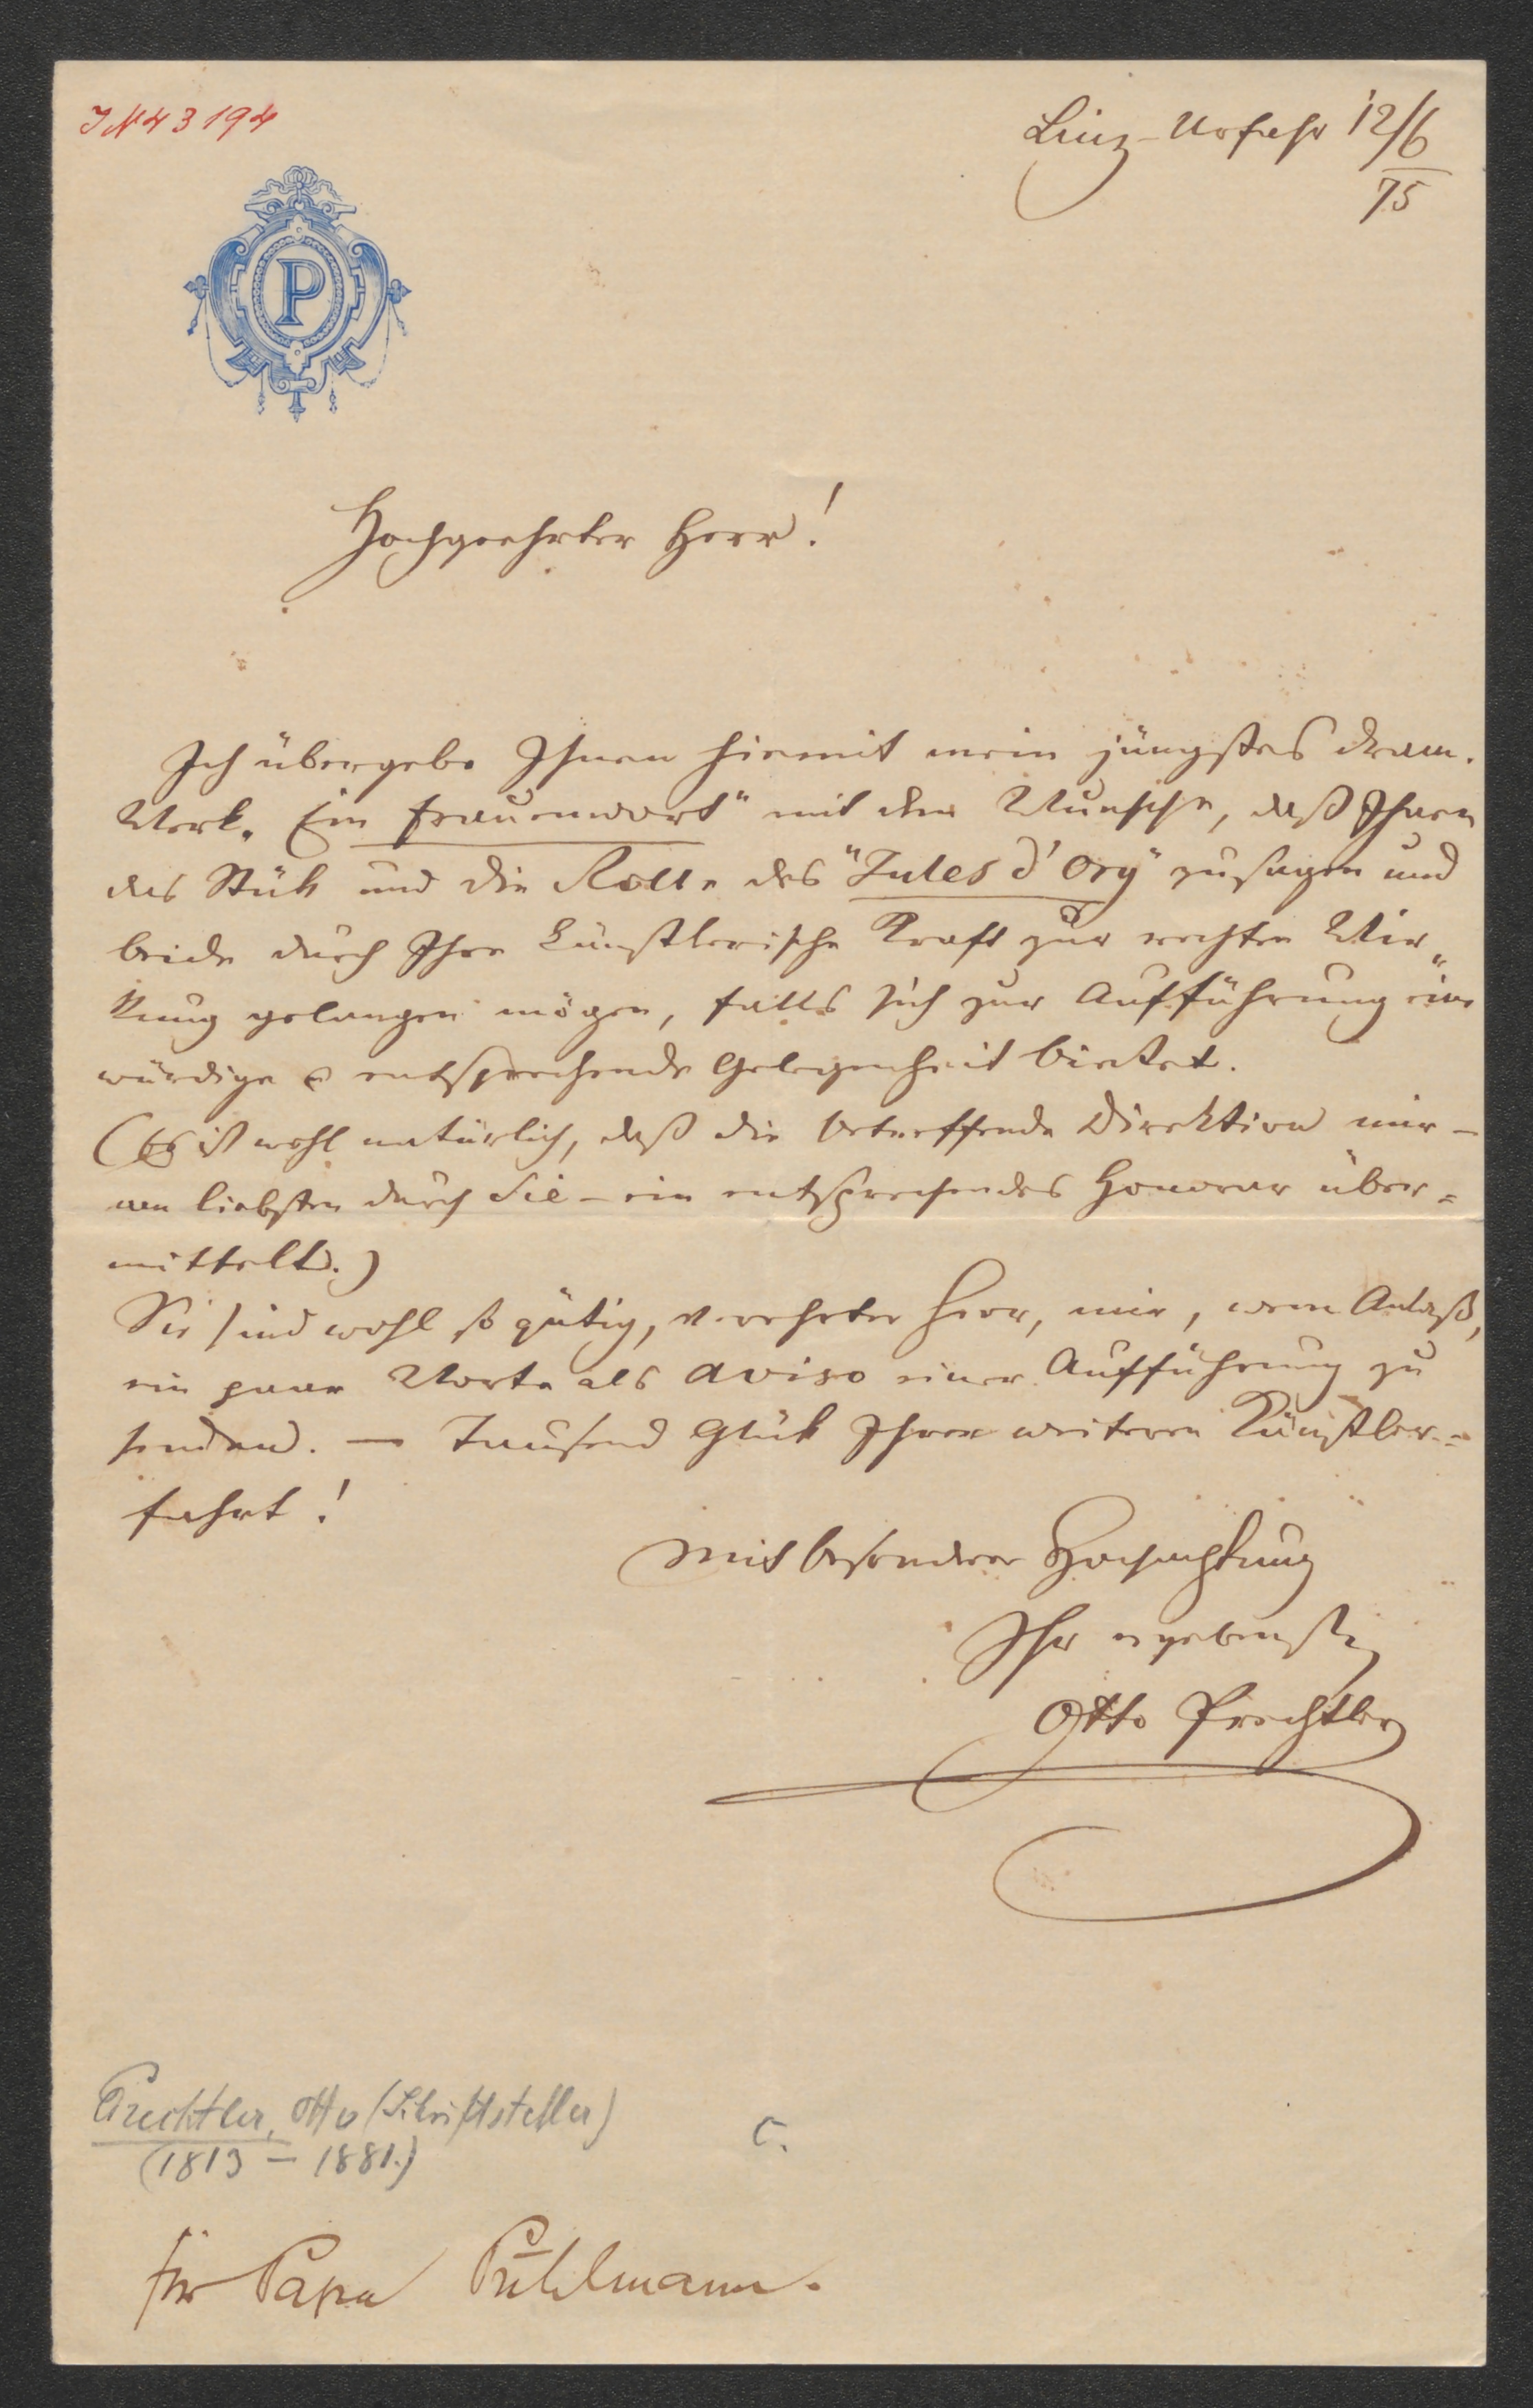 IN 43194
Linz-Urfahr 12/6
75
P
Hochgeehrter Herr!
Ich übergebe Ihnen hiemit mein jüngstes dram.
Werk „Ein Frauenwort" mit dem Wunsche, daß Ihnen
das Stük und die Rolle des "Jules d'Ory" zusagen und
beide durch Ihre künstlerische Kraft zur rechten Wir„
kung gelangen mögen, falls sich zur Aufführung eine
würdige & entsprechende Gelegenheit bietet.
(Es ist wohl natürlich, daß die betreffende Direktion mir –
am liebsten durch Sie – ein entsprechendes Honorar über=
mittelt.)
Sie sind wohl so gütig, verehrter Herr, mir, wenn Anlaß,
ein paar Worte als Aviso einer Aufführung zu
senden. — Tausend Glük Ihrer weiteren Künstler=
fahrt!
Mit besonderer Hochachtung
Ihr ergebenster
Otto Prechtler
Prechtler, Otto (Schriftsteller)
(1813 – 1881.)
C.
für Papa Pühlmann.